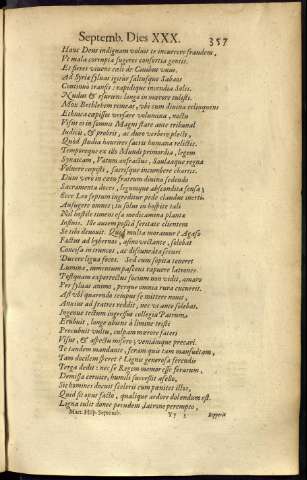 Septemb. Dies XXX. 357
Hanc Deus indignam voluit te incurrere fraudem,
Vt mala corrupta fugeres consortia gentis.
Et fieres vivens cæli de
Ad Syriæ sylvas igitur saltusque Sabæos
Continuò transis: rapidique incendia Solis.
Nudus & esuriens longa in mœrore tulisti.
Mox Bethlehem remeas, vbi cum divina relinquens
Ethnica cœpisses versare volumina, noctu
Visus es in somno Magni stare ante tribunal
Iudicis, & probris, ac duro verbere plecti,
Quòd studia haurires factis humana relictis.
Temporeque ex illo Mundi primordia, legem
Synaicam, Vatum anfractus, Saulaque regna
Volvere cœpisti, sacrisque incumbere chartis.
Dum verò in cœtu fratrum divina
Sacramenta doces, legumque abscondita sensa;
Ecce Leo septum ingreditur pede claudus inerti:
Aufugere omnes; tu solus in hospite tali
Nil hostile timens
Infinis. Ille autem positâ feritate clientem
Se tibi demisit. Quid multa moramur? Agaso
Factus ad hybernas, asino vectante, solebat
Concisa in truncos, ac
Ducere ligna focos. Sed cum sopita teneret
Lumina, iumentum pascens rapuere latrones.
Postquam experrectus socium non vidit, amaro
Per sylvas animo, perque omnia rura cucurrit.
Ast vbi quærendo tempus se mittere
Anxius ad fratres reddit, nec vt ante solebat.
Ingenuè tectum ingressus collegia Patrum
Erubuit, longè abiens à limine tristi
Procubuit vultu, culpam mœrore fateri
Visus, & aspectu misero; veniamque precari.
Te tandem mandante, feram quæ tam mansuetam,
Tam docilem fieret? Lignis generosa ferendis
Terga dedit: nec se Regem memor esse ferarum,
Demissa cervice, humili successit asello,
Sic homines docuit sceleris cum punitet ictus,
Quid sit opus facto, qualique ardore dolendum est.
Ligna tulit donec prendens latrone perempto,
Mart. Hisp. Septemb. Yy 3 Repperit